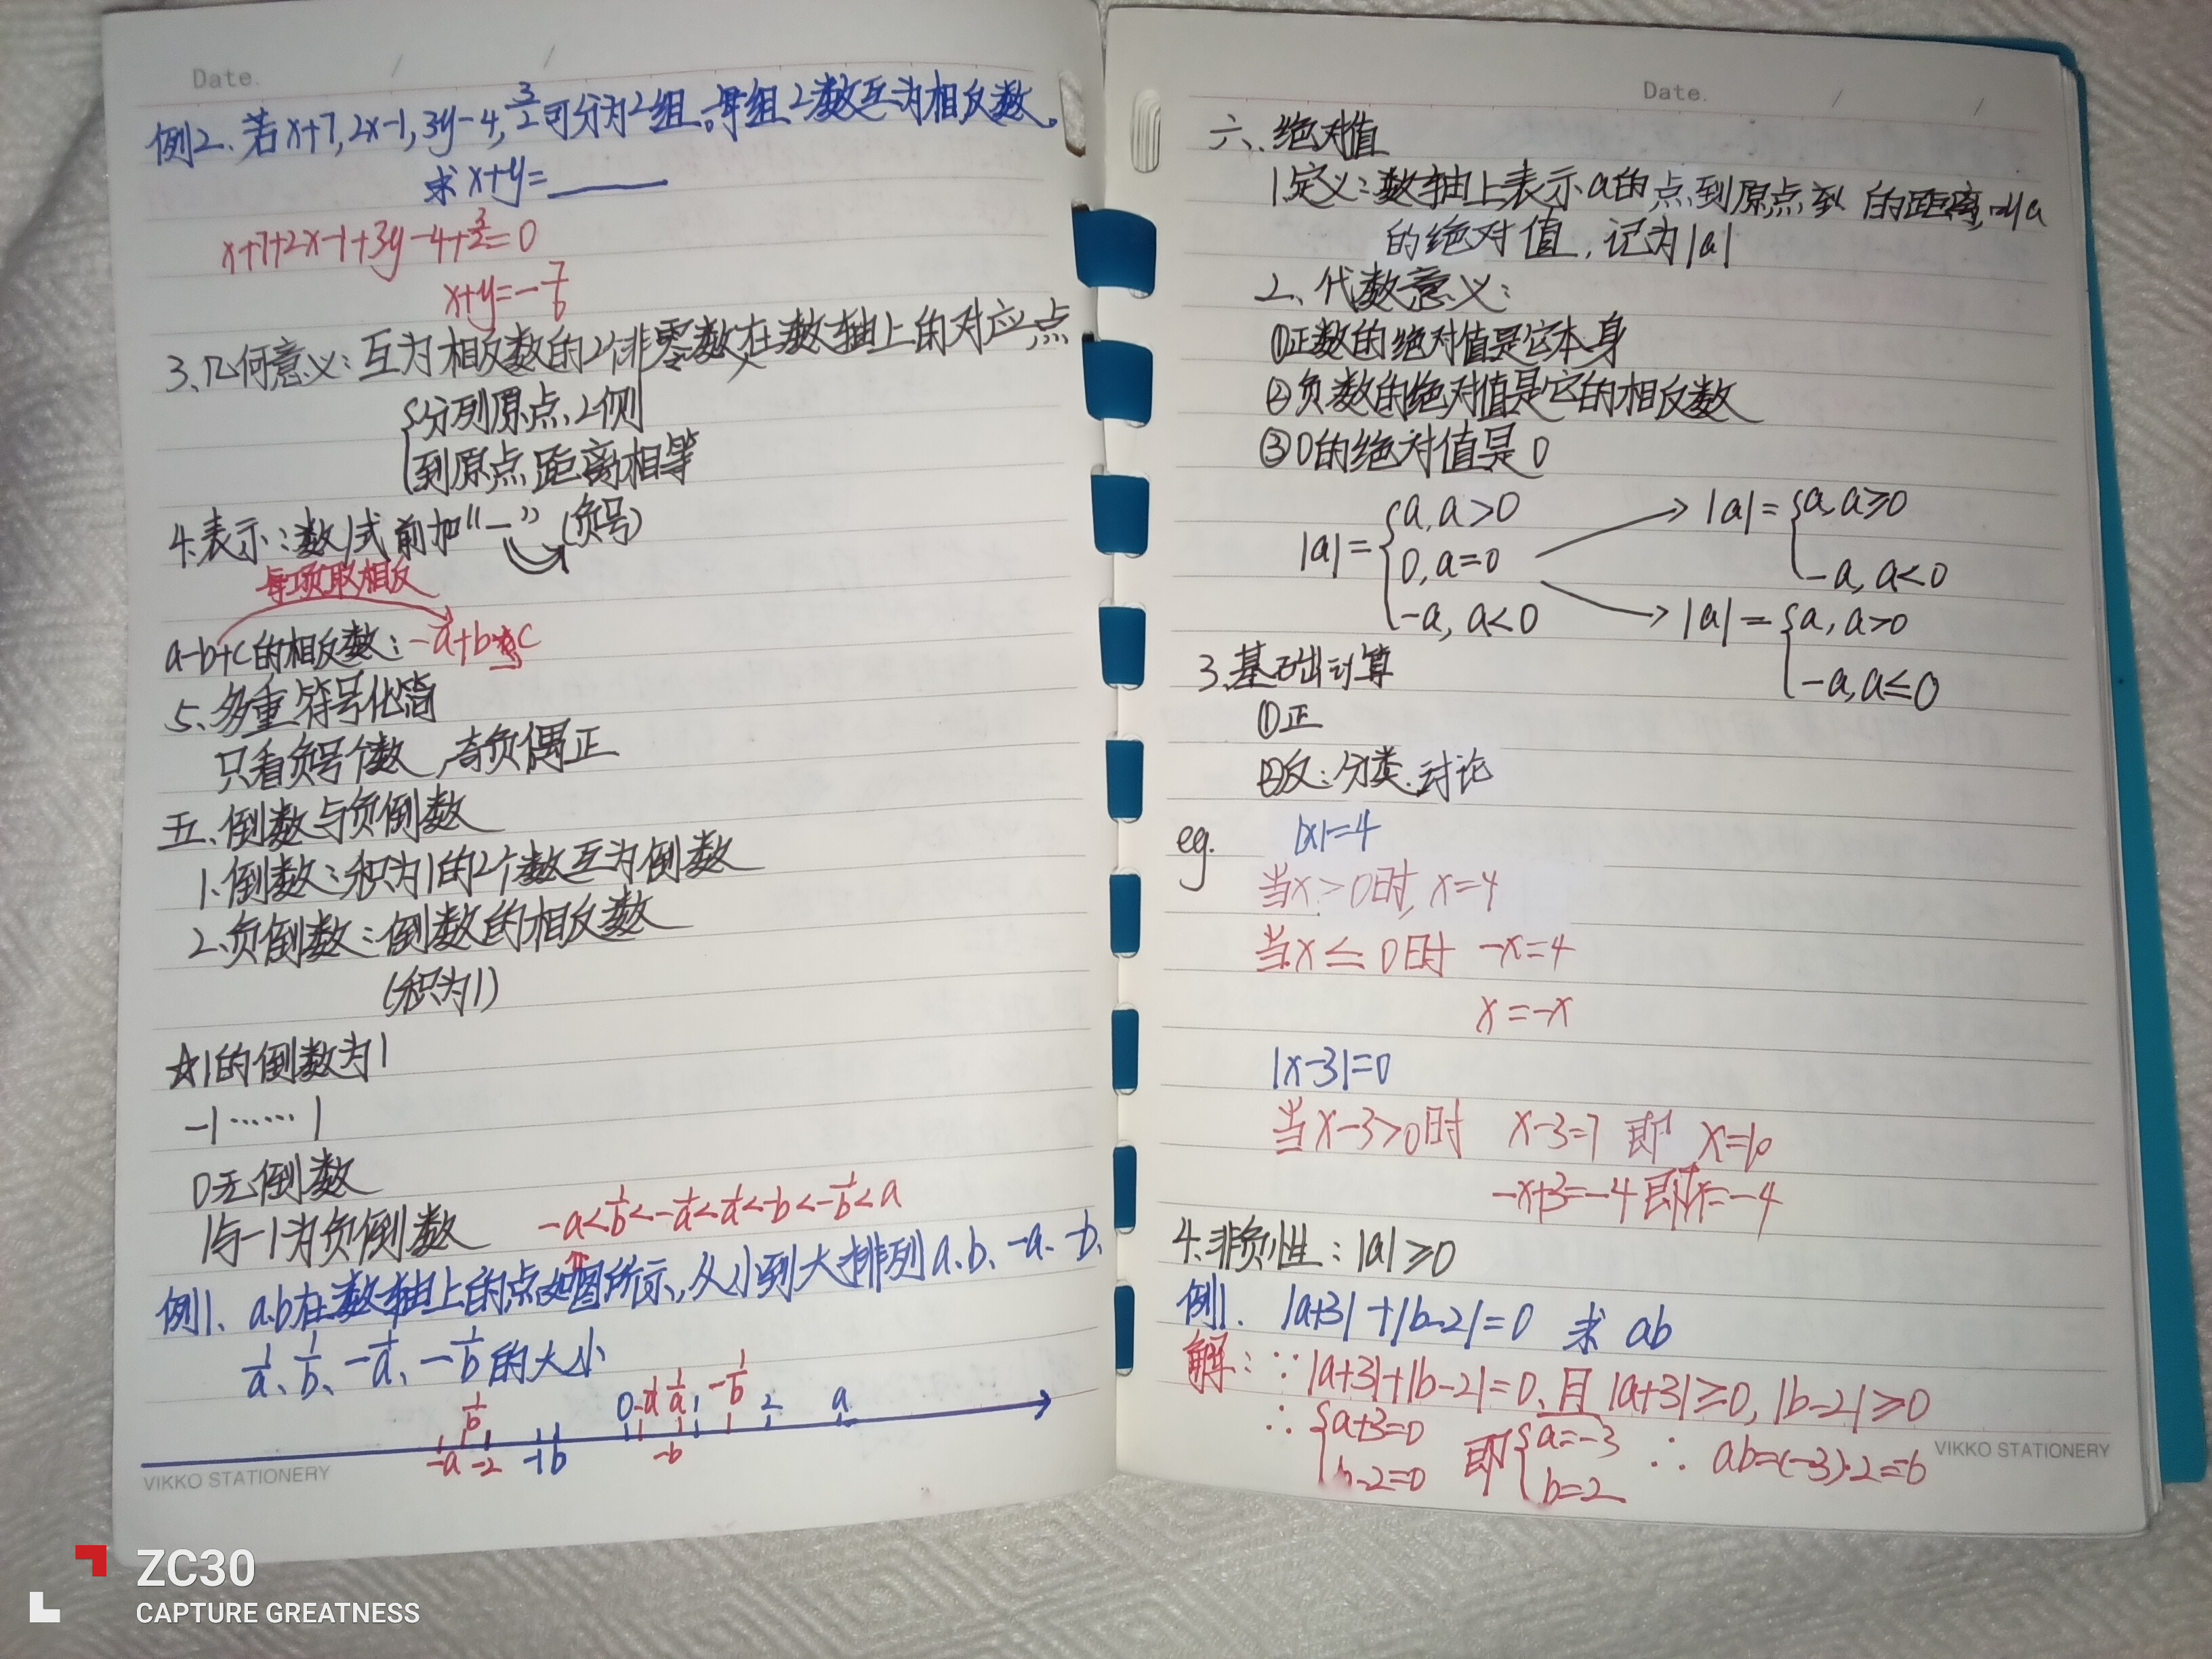 Date.
例2、若x+7,2x-1,3y-4,3/2可分为2组。每组2数互为相反数。
求x+y=______
x+7+2x-1+3y-4+3/2=0
x+y=-7/6
3、几何意义:互为相反数的2个非零数在数轴上的对应点
{分列原点2侧
到原点距离相等
4.表示:数/式前加“—”(负号)
每项取相反
a-b+c的相反数:-a+b-c
5、多重符号化简
只看负号个数,奇负偶正
五、倒数与负倒数
1、倒数:积为1的2个数互为倒数
2.负倒数:倒数的相反数
(积为1)
☆1的倒数为1
-1……1
0无倒数
1与-1为负倒数
-a<1/b<-1/a<1/a<-b<-1/b<a
例1、a.b在数轴上的点如图所示,从小到大排列a、b、-a、-b、
1/a、1/b、-1/a、-1/b的大小
1/b 0 -1/a 1/a 1 -1/b 2 a
-a -2 -1 b -b
VIKKO STATIONERY
Date.
六、绝对值
1.定义:数轴上表示a的点到原点到 的距离,叫a
的绝对值,记为|a|
2、代数意义:
①正数的绝对值是它本身
②负数的绝对值是它的相反数
③0的绝对值是0
|a|={a,a>0 0,a=0 -a,a<0
→|a|={a,a≥0 -a,a<0
→|a|={a,a>0 -a,a≤0
3.基础计算
①正
②反:分类讨论
eg. |x|=4
当x>0时,x=4
当x≤0时 -x=4
x=-x
|x-3|=0
当x-3>0时 x-3=7 即 x=10
-x+3=-4即x=-4
4.非负性:|a|≥0
例1. |a+3|+|b-2|=0 求 ab
解:∵|a+3|+|b-2|=0,且|a+3|≥0,|b-2|≥0
∴{a+3=0 b-2=0 即{a=-3 b=2 ∴ab=(-3)·2=-6
VIKKO STATIONERY
ZC30
CAPTURE GREATNESS